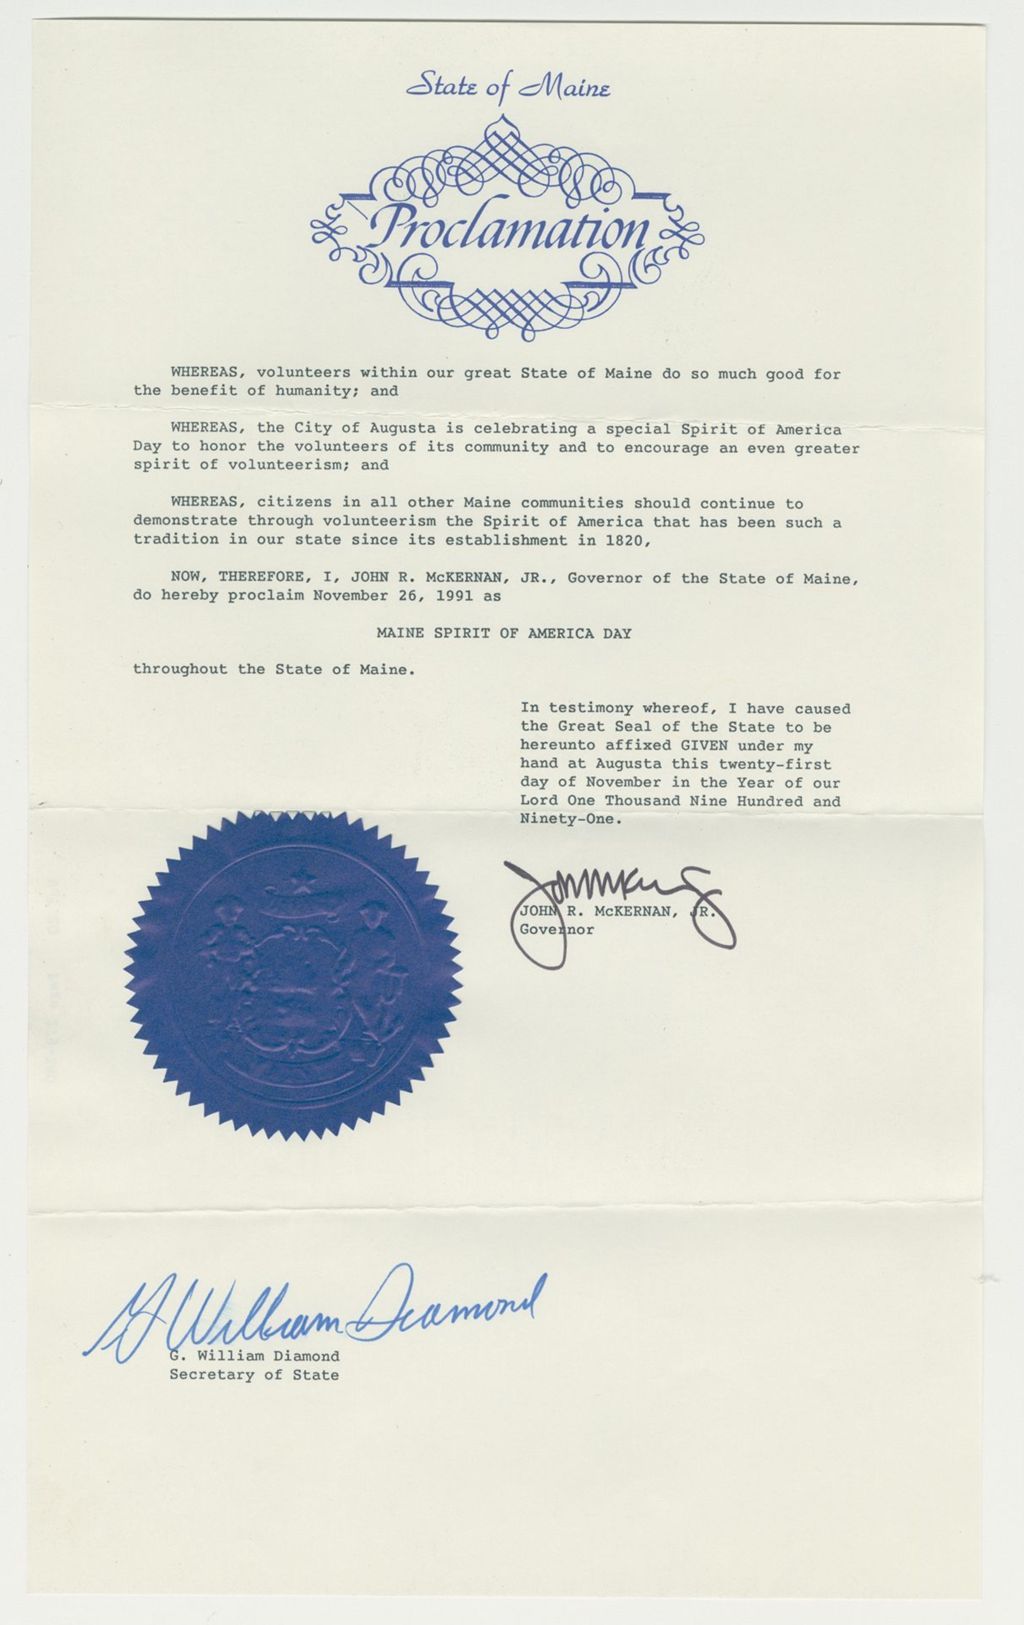 State of Maine
Proclamation
WHEREAS, volunteers within our great State of Maine do so much good for
the benefit of humanity; and
WHEREAS, the City of Augusta is celebrating a special Spirit of America
Day to honor the volunteers of its community and to encourage an even greater
spirit of volunteerism; and
WHEREAS, citizens in all other Maine communities should continue to
demonstrate through volunteerism the Spirit of America that has been such a
tradition in our state since its establishment in 1820,
NOW, THEREFORE, I, JOHN R. McKERNAN, JR., Governor of the State of Maine,
do hereby proclaim November 26, 1991 as
MAINE SPIRIT OF AMERICA DAY
throughout the State of Maine.
In testimony whereof, I have caused
the Great Seal of the State to be
hereunto affixed GIVEN under my
hand at Augusta this twenty-first
day of November in the Year of our
Lord One Thousand Nine Hundred and
Ninety-One.
JOHN R. McKERNAN, JR.
Governor
G William Diamond
G. William Diamond
Secretary of State